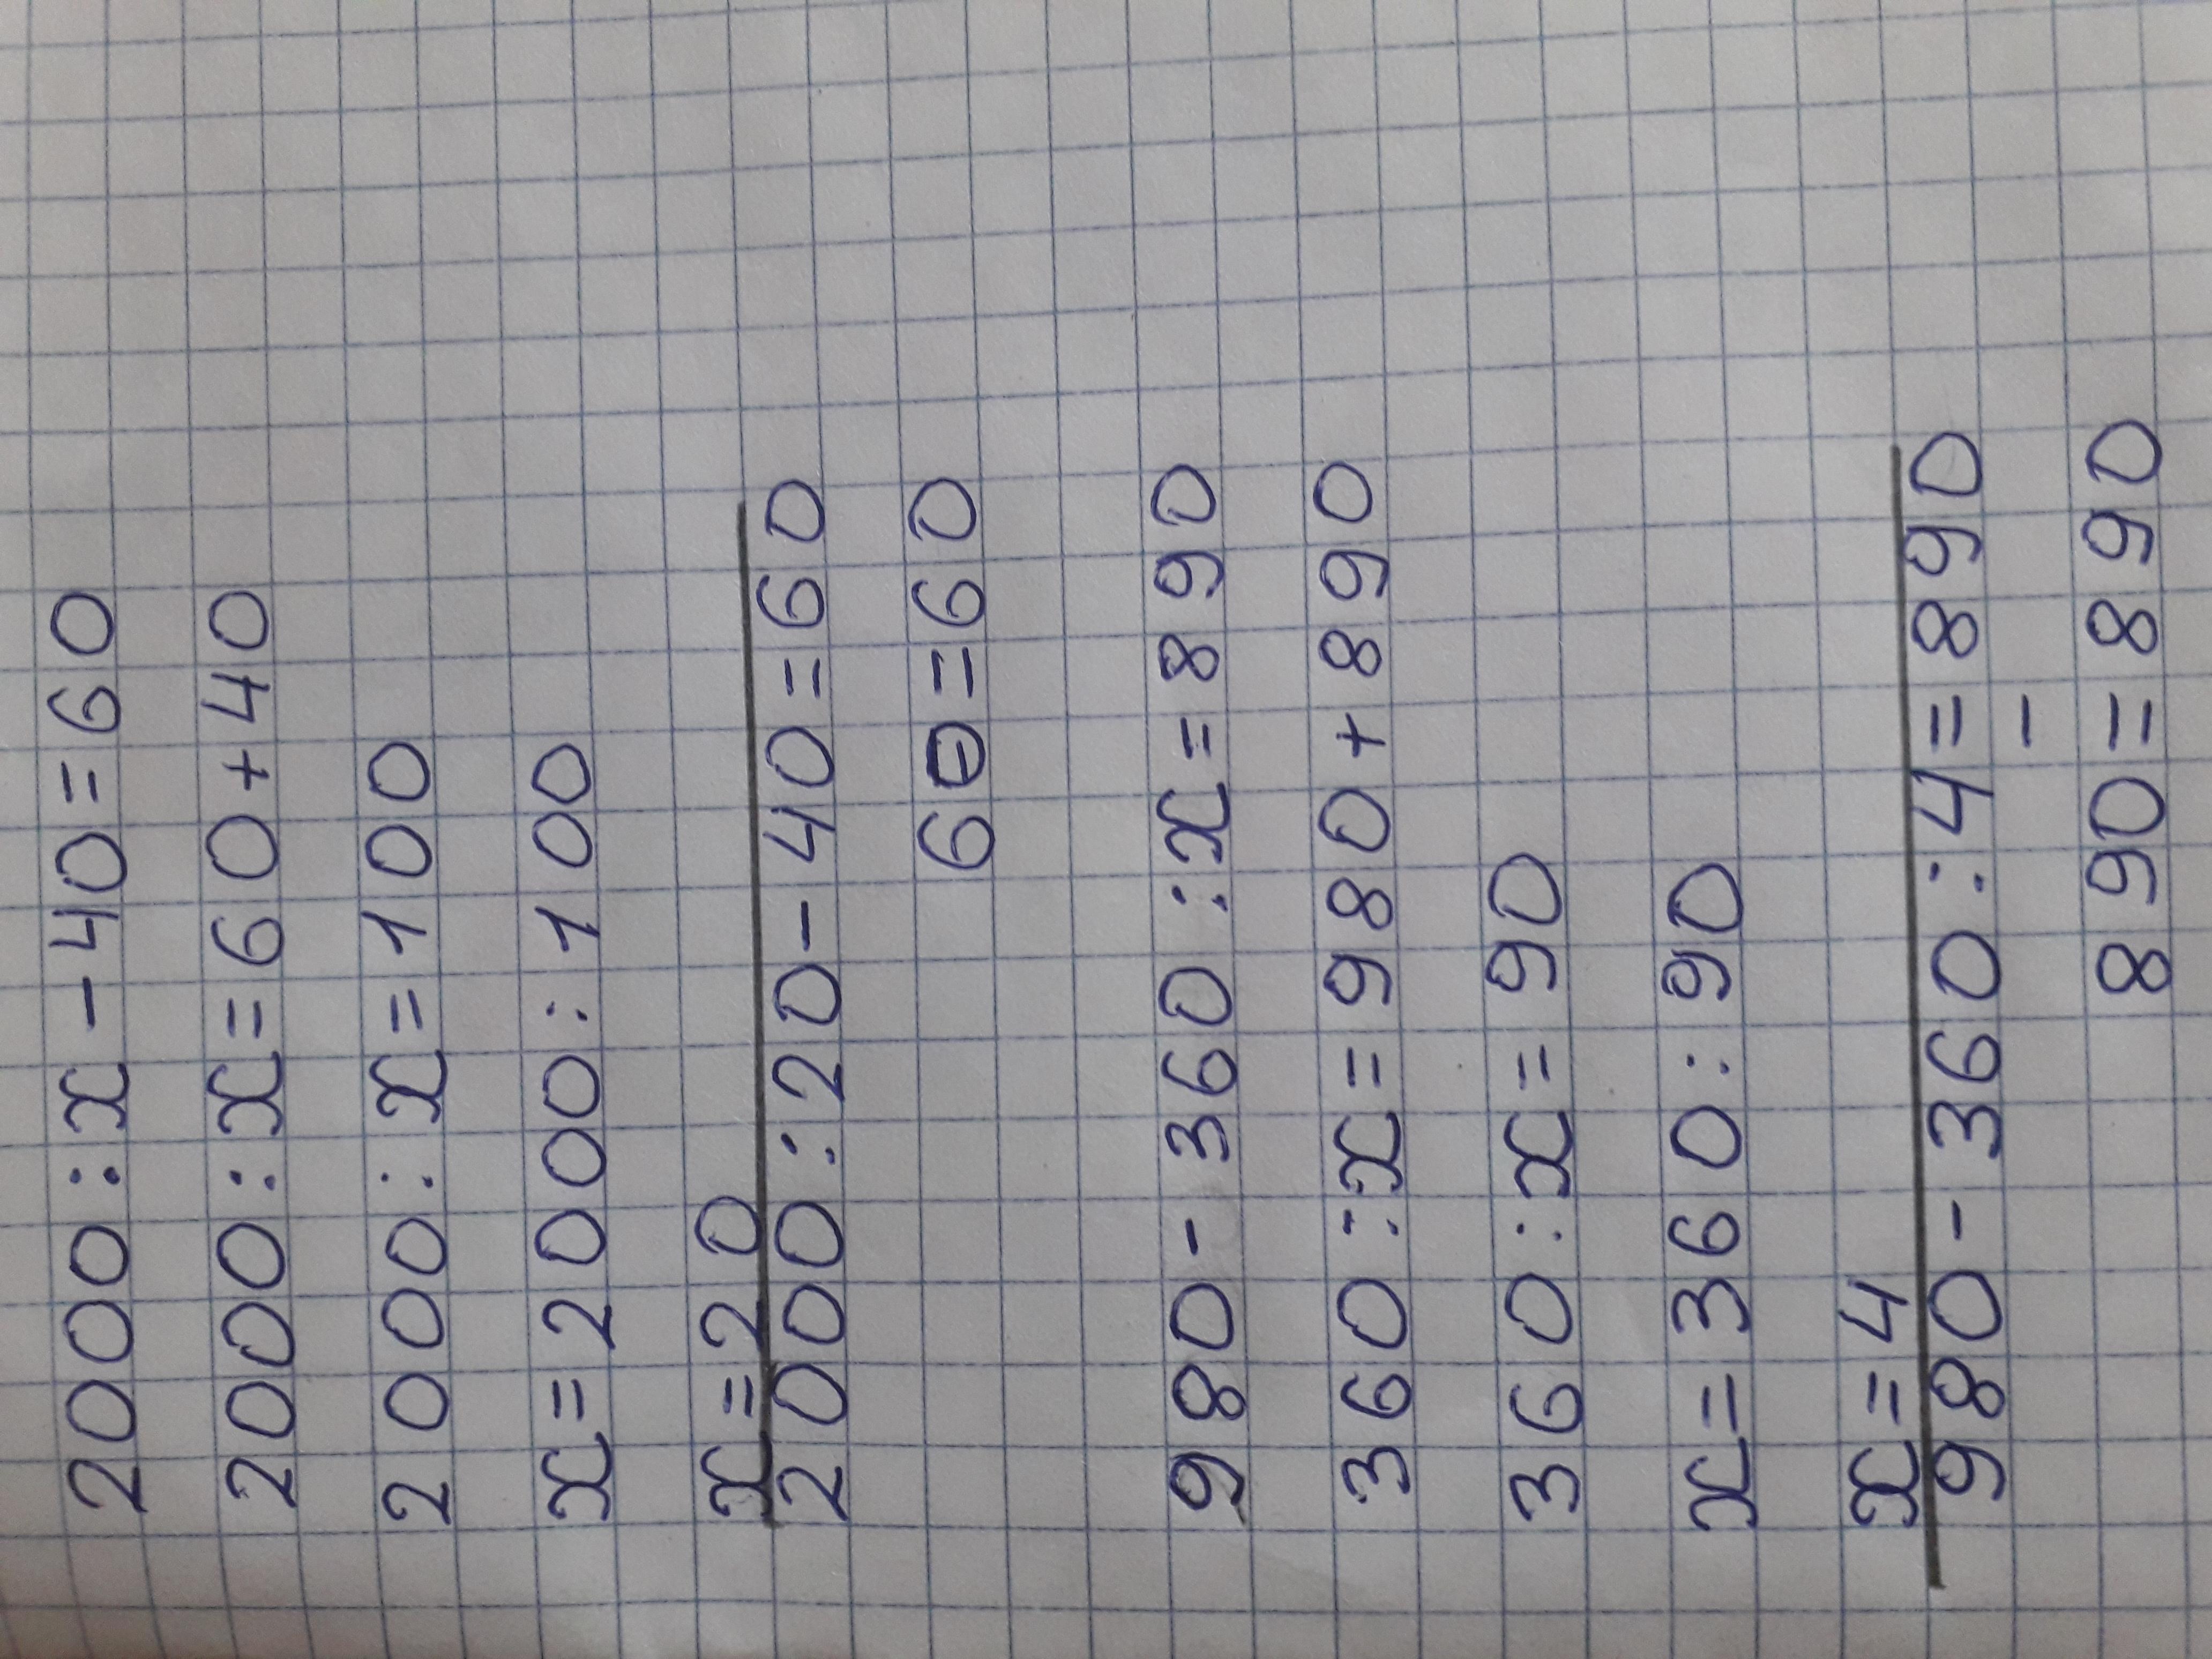 2000:x-40=60
2000:x=60+40
2000:x=100
x=2000:100
x=20
2000:20-40=60
60=60
980-360:x=890
360:x=980+890
360:x=90
x=360:90
x=4
980-360:4=890
890=890